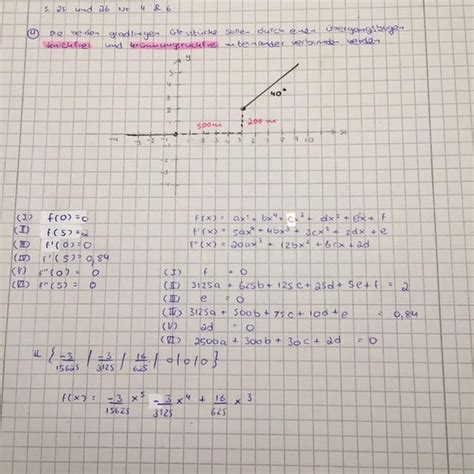 S. 25 und 26 Nr 4 & 6
4) Die beiden gradlinigen Gleisstücke sollen durch einen Übergangsbogen
knickfrei und krümmungsruckfrei miteinander verbunden werden
y
5
4
3
2
1
40°
500m 200m
-4 -3 -2 -1 1 2 3 4 5 6 7 8 9 10 x
-1
-2
-3
-4
(I) f(0)=0 f(x) = ax⁵ + bx⁴ + cx³ + dx² + ex + f
(II) f(5)=2 f'(x) = 5ax⁴ + 4bx³ + 3cx² + 2dx + e
(III) f'(0)=0 f''(x) = 20ax³ + 12bx² + 6cx + 2d
(IV) f'(5)=0,84
(V) f''(0) = 0 (I) f = 0
(VI) f''(5) = 0 (II) 3125a + 625b + 125c + 25d + 5e + f = 2
(III) e = 0
(IV) 3125a + 500b + 75c + 10d + e = 0,84
(V) 2d = 0
(VI) 2500a + 300b + 30c + 2d = 0
𝕃 { -3/15625 | -3/3125 | 16/625 | 0 | 0 | 0 }
f(x) = -3/15625 x⁵ -3/3125 x⁴ + 16/625 x³